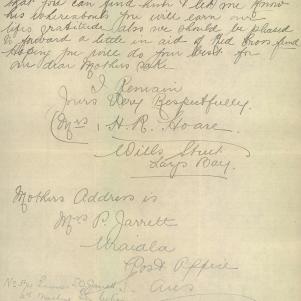 that you can find him & let me know
his whereabouts you will earn our
lifes gratitude also we should be pleased
to forward a little in aid of Red Cross fund
Hoping you will do your best for
our dear Mothers sake
I Remain
Yours Very Respectfully.
(Mrs) H. R. Hoare.
Wills Street
Largs Bay.
Mothers Address is
Mrs P. Jarrett
Uraidla
Post Office
Aus